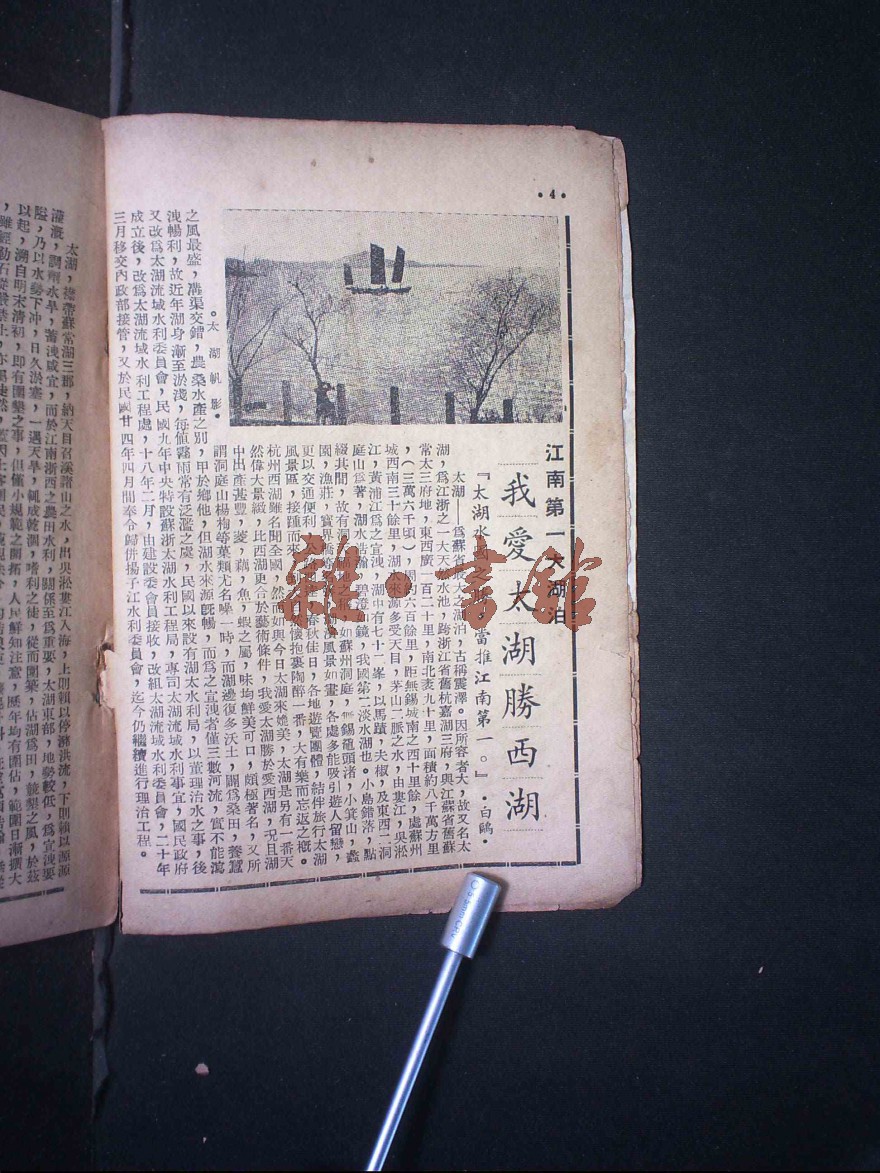 •4•
江南第一大湖泊
我愛太湖勝西湖
『太湖水國之勝,當推江南第一。』
•白鷗•
太湖——為蘇省最大之湖泊,古稱震澤。因所容者大,故又名太
湖,為江浙之一大天然水池,跨浙江省舊杭嘉湖三府,與江蘇省舊蘇
常太三府地,東西廣一百二十里,南北袤九十里,面積約八千萬方里
,(三萬六千頃),周約六百餘里,距無錫城南之西十里餘,處蘇州
城西南三十餘里,湖水來源多受天目,茅山二脈之水,由婁江,吳淞
江,黃浦江為之宣洩,湖中有七十二峯,以馬蹟,夫椒,及東西二洞
庭山為著,湖水浩瀚,碧澄如鏡,我國第二淡水湖也。小島錯落,點
綴其間,故有洞天福地之稱,如蘇州洞庭,無錫黿頭渚,小箕山,蠡
園,漁莊,寶界橋等處,風景如畫,各處多能吸引遊人留戀,
更以交通便利,公路,春秋佳日,各地遊覽團體,結伴旅行太湖
風景區,接踵而來,懷抱襄陶醉一番,大有樂而忘返之概。
杭州西湖雖名聞全國,然而如與今日太湖來媲美,太湖是另有一番天
然偉大景緻,比西湖更合於藝術條件,我愛太湖勝於愛西湖,況且湖
中出產甚豐,菱,藕,魚,蝦之屬,味均鮮美可口,頗極著名,又所
謂洞庭山楊梅等菓類尤名噪一時,而湖邊復多沃土,闢為桑田,養蠶
之風最盛,溝渠交錯,農桑水產之別,甲於鄉他,但湖水來源既暢,而為之宣洩者僅三數河流,實不能瀉
洩暢利,故近年湖身漸至淤淺,每值霪雨常有泛濫之處,民國以來設有湖太水利局,以董理治水之事,後
又改為太湖流域水利委員會,民國九年中央特設蘇浙太湖水利工程局,專司太湖流域水利事宜,國民政府
成立後,改為太湖流域水利工程處,十八年二月,由建設委會員接收,改組太湖流域水利委員會,二十年
三月移交內政部接管,又於民國廿四年四月間奉令歸併揚子江水利委員會,迄今仍繼續進行理治工程。
。太湖帆影。
太湖,攜帶蘇常湖三郡,納天目苕溪諸山之水,出吳淞婁江入海,上則賴以停瀦洪流,下則賴以源源
灌溉,調劑水旱,蓄洩咸宜,而於江南浙西之農田水利,關係至為重要,太湖東部,地勢較低,為宣洩要
隘,乃以水勢下沖,日久淤塞,一遇天旱,輒成乾涸,嗜利之徒,從而圍築,佔湖為田,競墾之風,於茲
以起,溯自明末清初,即有圍墾之事,但僅小規範之開拓,人民鮮知注意,歷年均有圍佔,範圍日漸擴大
雜·書館